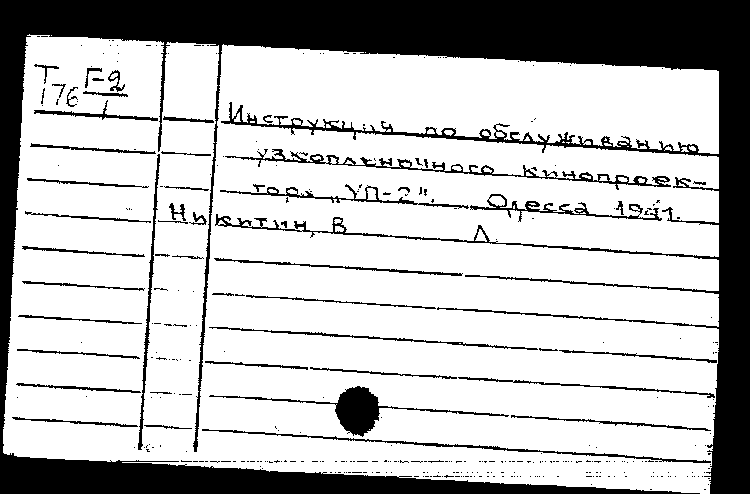 Т Г-2
176 1
Инструкция по обслуживанию
узкопленочного кинопроек-
тора „УП-2". Одесса 1941.
Никитин, В Л